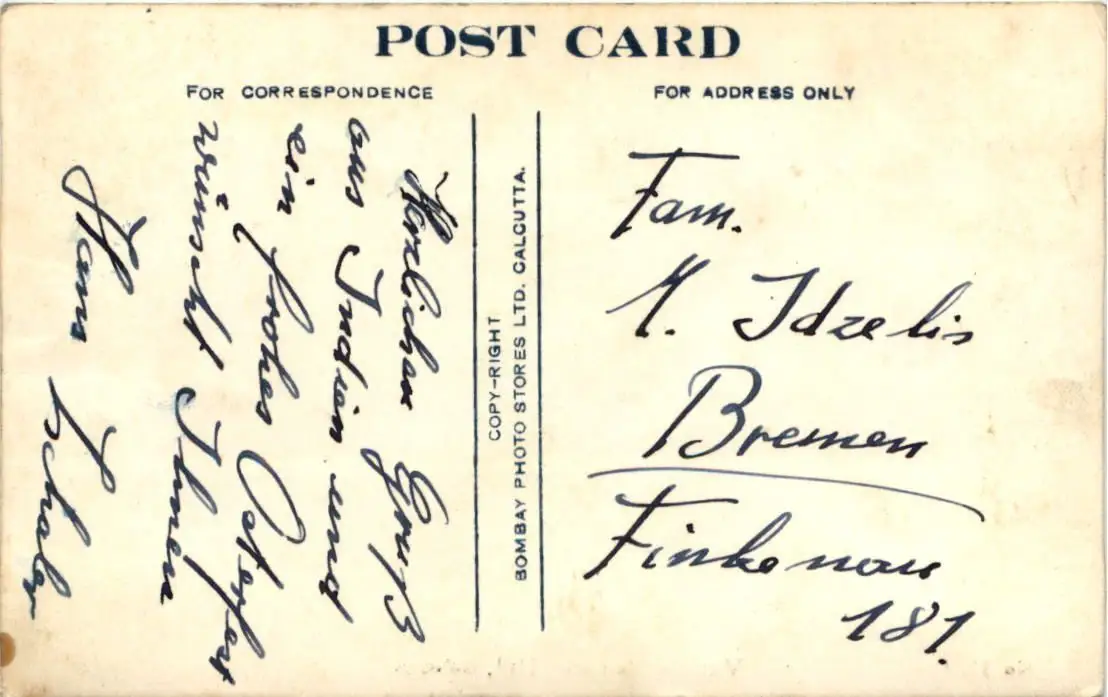 POST CARD
FOR CORRESPONDENCE
FOR ADDRESS ONLY
Herzlichen Gruß
aus Indien und
ein frohes Osterfest
wünscht Ihnen
Hans
COPY-RIGHT
BOMBAY PHOTO STORES LTD. CALCUTTA.
Fam.
Idzelis
Bremen
Finkenau
181.